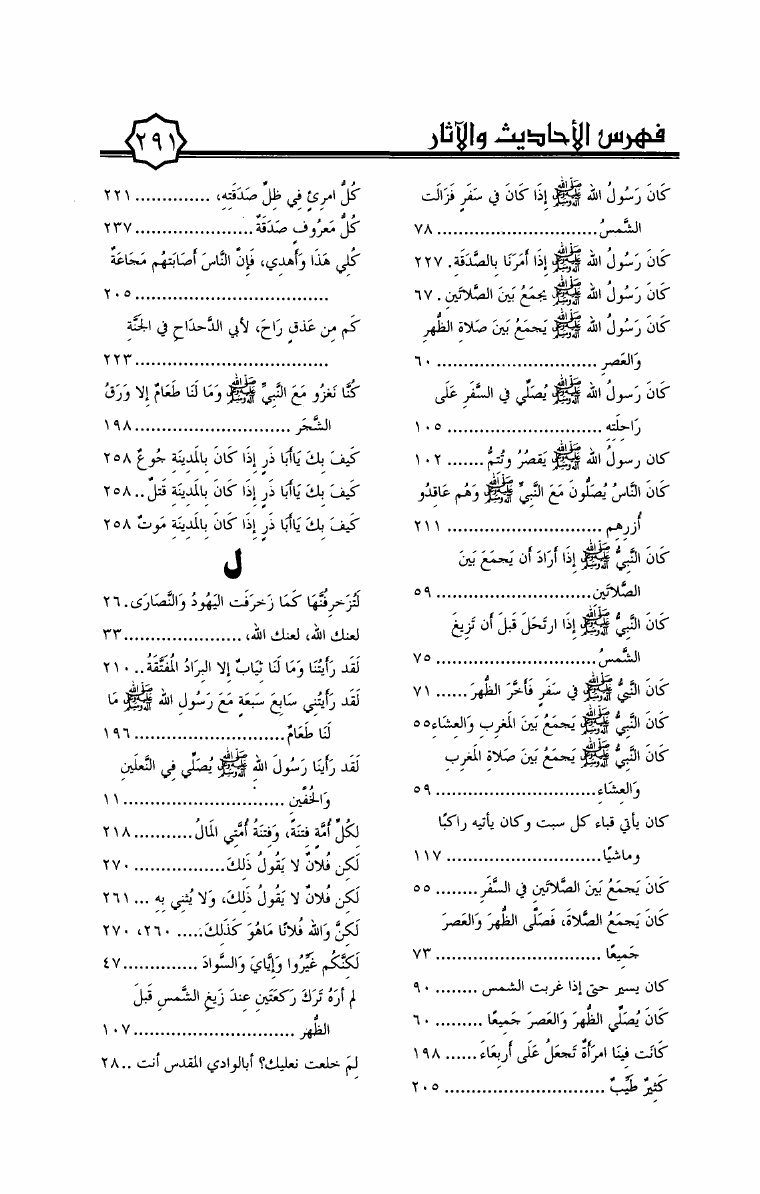 فهرس الأحاديث والآثار
٢٩١
كَانَ رَسُولُ الله ﷺ إِذَا كَانَ في سَفَرٍ فَزَالَت
الشَّمسُ............................ ٧٨
كَانَ رَسُولُ الله ﷺ إِذَا أَمَرَنَا بالصَّدَقَة. ٢٢٧
كَانَ رَسُولُ الله ﷺ يجمَعُ بَينَ الصَّلاتَينِ. ٦٧
كَانَ رَسُولُ الله ﷺ يَجمَعُ بَينَ صَلاة الظُّهرِ
وَالعَصرِ ......................... ٦٠
كَانَ رَسولُ الله ﷺ يُصَلِّي في السَّفَرِ عَلَى
رَاحِلَته ......................... ١٠٥
كان رسولُ الله ﷺ يَقصُرُ وتُتمُّ....... ١٠٢
كَانَ النَّاسُ يُصَلُّونَ مَعَ النَّبيِّ ﷺ وَهُم عَاقدُو
أُزرِهِم ......................... ٢١١
كَانَ النَّبيُّ ﷺ إِذَا أَرَادَ أَن يَجمَعَ بَينَ
الصَّلاتَين......................... ٥٩
كَانَ النَّبيُّ ﷺ إِذَا ارتَحَلَ قَبلَ أَن تَزِيغَ
الشَّمسُ............................ ٧٥
كَانَ النَّبيُّ ﷺ في سَفَرٍ فَأَخَّرَ الظُّهرَ...... ٧١
كَانَ النَّبيُّ ﷺ يَجمَعُ بَينَ المَغرِبِ وَالعِشَاء٥٥
كَانَ النَّبيُّ ﷺ يَجمَعُ بَينَ صَلاة المَغرِبِ
وَالعشَاء......................... ٥٩
كان يأتي قباء كل سبت وكان يأتيه راكبًا
وماشيًا......................... ١١٧
كَانَ يَجمَعُ بَينَ الصَّلاتَينِ في السَّفَرِ........ ٥٥
كَانَ يَجمَعُ الصَّلاةَ، فَصَلَّى الظُّهرَ وَالعَصرَ
جَميعًا ......................... ٧٣
كان يسير حتى إذا غربت الشمس ........ ٩٠
كَانَ يُصَلِّي الظُّهرَ وَالعَصرَ جَميعًا ......... ٦٠
كَانَت فِينَا امرَأَةٌ تَجعَلُ عَلَى أَربِعَاءَ...... ١٩٨
كَثِيرٌ طَيِّبٌ ......................... ٢٠٥
كُلُّ امرِئٍ فِي ظِلِّ صَدَقَتِهِ، ............. ٢٢١
كُلُّ مَعرُوفٍ صَدَقَةٌ..................... ٢٣٧
كُلِي هَذَا وَأَهدِي، فَإِنَّ النَّاسَ أَصَابَتهُم مَجَاعَةٌ
......................... ٢٠٥
كَم مِن عَذقٍ رَاحَ، لأَبي الدَّحدَاحِ في الجَنَّةِ
......................... ٢٢٣
كُنَّا نَغزُو مَعَ النَّبيِّ ﷺ وَمَا لَنَا طَعَامٌ إِلا وَرَقُ
الشَّجَر ......................... ١٩٨
كَيفَ بِكَ يَاأَبَا ذَرٍ إِذَا كَانَ بِالمَدِينَةِ جُوعٌ ٢٥٨
كَيفَ بِكَ يَاأَبَا ذَرٍ إِذَا كَانَ بِالمَدِينَةِ قَتلٌ.. ٢٥٨
كَيفَ بِكَ يَاأَبَا ذَرٍ إِذَا كَانَ بِالمَدِينَةِ مَوتٌ ٢٥٨
ل
لَتُزَخرِفُنَّهَا كَمَا زَخرَفَت اليَهُودُ وَالنَّصَارَى. ٢٦
لعنك الله، لعنك الله، ..................... ٣٣
لَقَد رَأَيتُنَا وَمَا لَنَا ثِيَابٌ إِلا البرَادُ المُفَتَّقَةُ.. ٢١٠
لَقَد رَأَيتُنِي سَابِعَ سَبعَةٍ مَعَ رَسُولِ الله ﷺ مَا
لَنَا طَعَامٌ......................... ١٩٦
لَقَد رَأَينَا رَسُولَ اللهِ ﷺ يُصَلِّي فِي النَّعلَينِ
وَالخُفَّينِ ......................... ١١
لكُلِّ أُمَّةٍ فتنَةً، وَفتنَةُ أُمَّتي المَالُ........... ٢١٨
لَكِن فُلانٌ لا يَقُولُ ذَلِكَ................. ٢٧٠
لَكِن فُلانٌ لا يَقُولُ ذَلِكَ، وَلا يُثنِي بِهِ ... ٢٦١
لَكِنَّ وَالله فُلانًا مَاهُوَ كَذَلكَ:.... ٢٦٠، ٢٧٠
لَكنَّكُم غَيِّرُوا وَإِيَّايَ وَالسَّوادَ .............. ٤٧
لم أرَهُ تَرَكَ رَكعَتَينِ عندَ زَيغِ الشَّمسِ قَبلَ
الظُّهر ......................... ١٠٧
لِمَ خلعت نعليك؟ أبالوادي المقدس أنت .. ٢٨